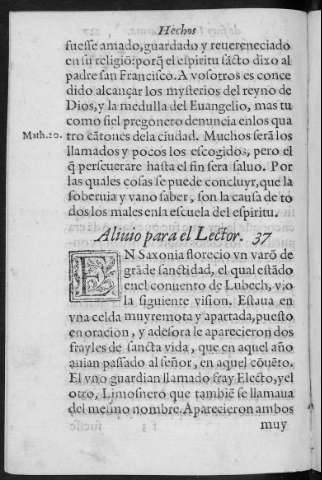 Hechos
fuesse amado, guardado y reuereneciado
en su religiō: porq̄ el espiritu sācto dixo al
padre san Francisco. A vosotros es conce
dido alcançar los mysterios del reyno de
Dios, y la medulla del Euangelio, mas tu
como fiel pregonero denuncia enlos qua
Math. 20.
tro cātones dela ciudad. Muchos serā los
llamados y pocos los escogidos, pero el
q̄ perseuerare hasta el fin sera saluo. Por
las quales cosas se puede concluyr, que la
soberuia y vano saber, son la causa de to
dos los males enla escuela del espiritu.
Aliuio para el Lector. 37
EN Saxonia florecio vn varō de
grāde sanctidad, el qual estādo
enel conuento de Lubech, vio
la siguiente vision. Estaua en
vna celda muy remota y apartada, puesto
en oracion, y adesora le aparecieron dos
frayles de sancta vida, que en aquel año
auian passado al señor, en aquel cōuēto.
El vno guardian llamado fray Electo, y el
otro, Limosnero que tambiē se llamaua
del mesmo nombre. Aparecieron ambos
muy